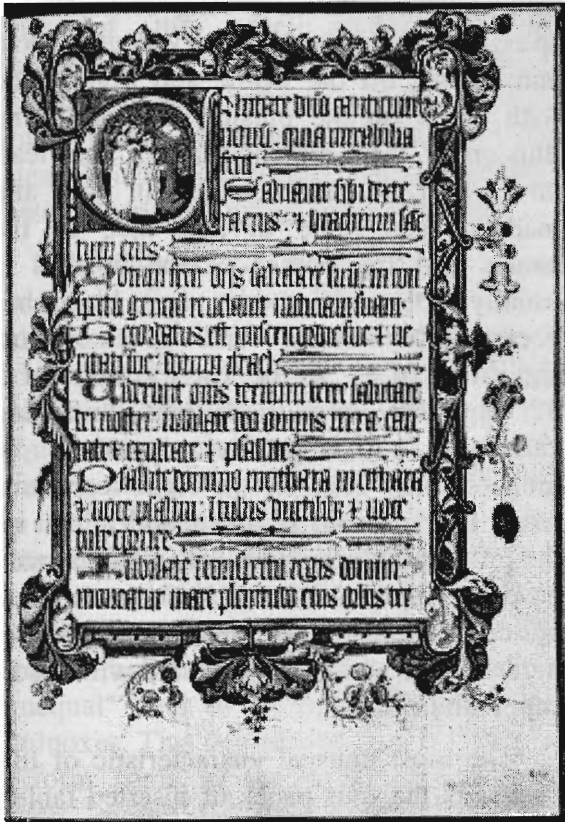 Cantate dño canticum
nouũ: quia mirabilia
fecit
Saluauit sibi dexte
ra eius: ⁊ brachium sãc
tum eius
Notum fecit dñs salutare suũ: in con
spectu genciũ reuelauit iusticiam suam
Recordatus est misericordie sue ⁊ ue
ritatis sue: domui israel
Uiderunt om̃s termini terre salutare
dei nostri: iubilate deo omnis terra can
tate ⁊ exultate ⁊ psallite
Psallite domino in cythara in cythara
⁊ uoce psalmi: ĩ tubis ductilibꝫ ⁊ uoce
tube cornee
Iubilate ĩ conspectu regis domini:
moueatur mare ⁊ plenitudo eius orbis ter